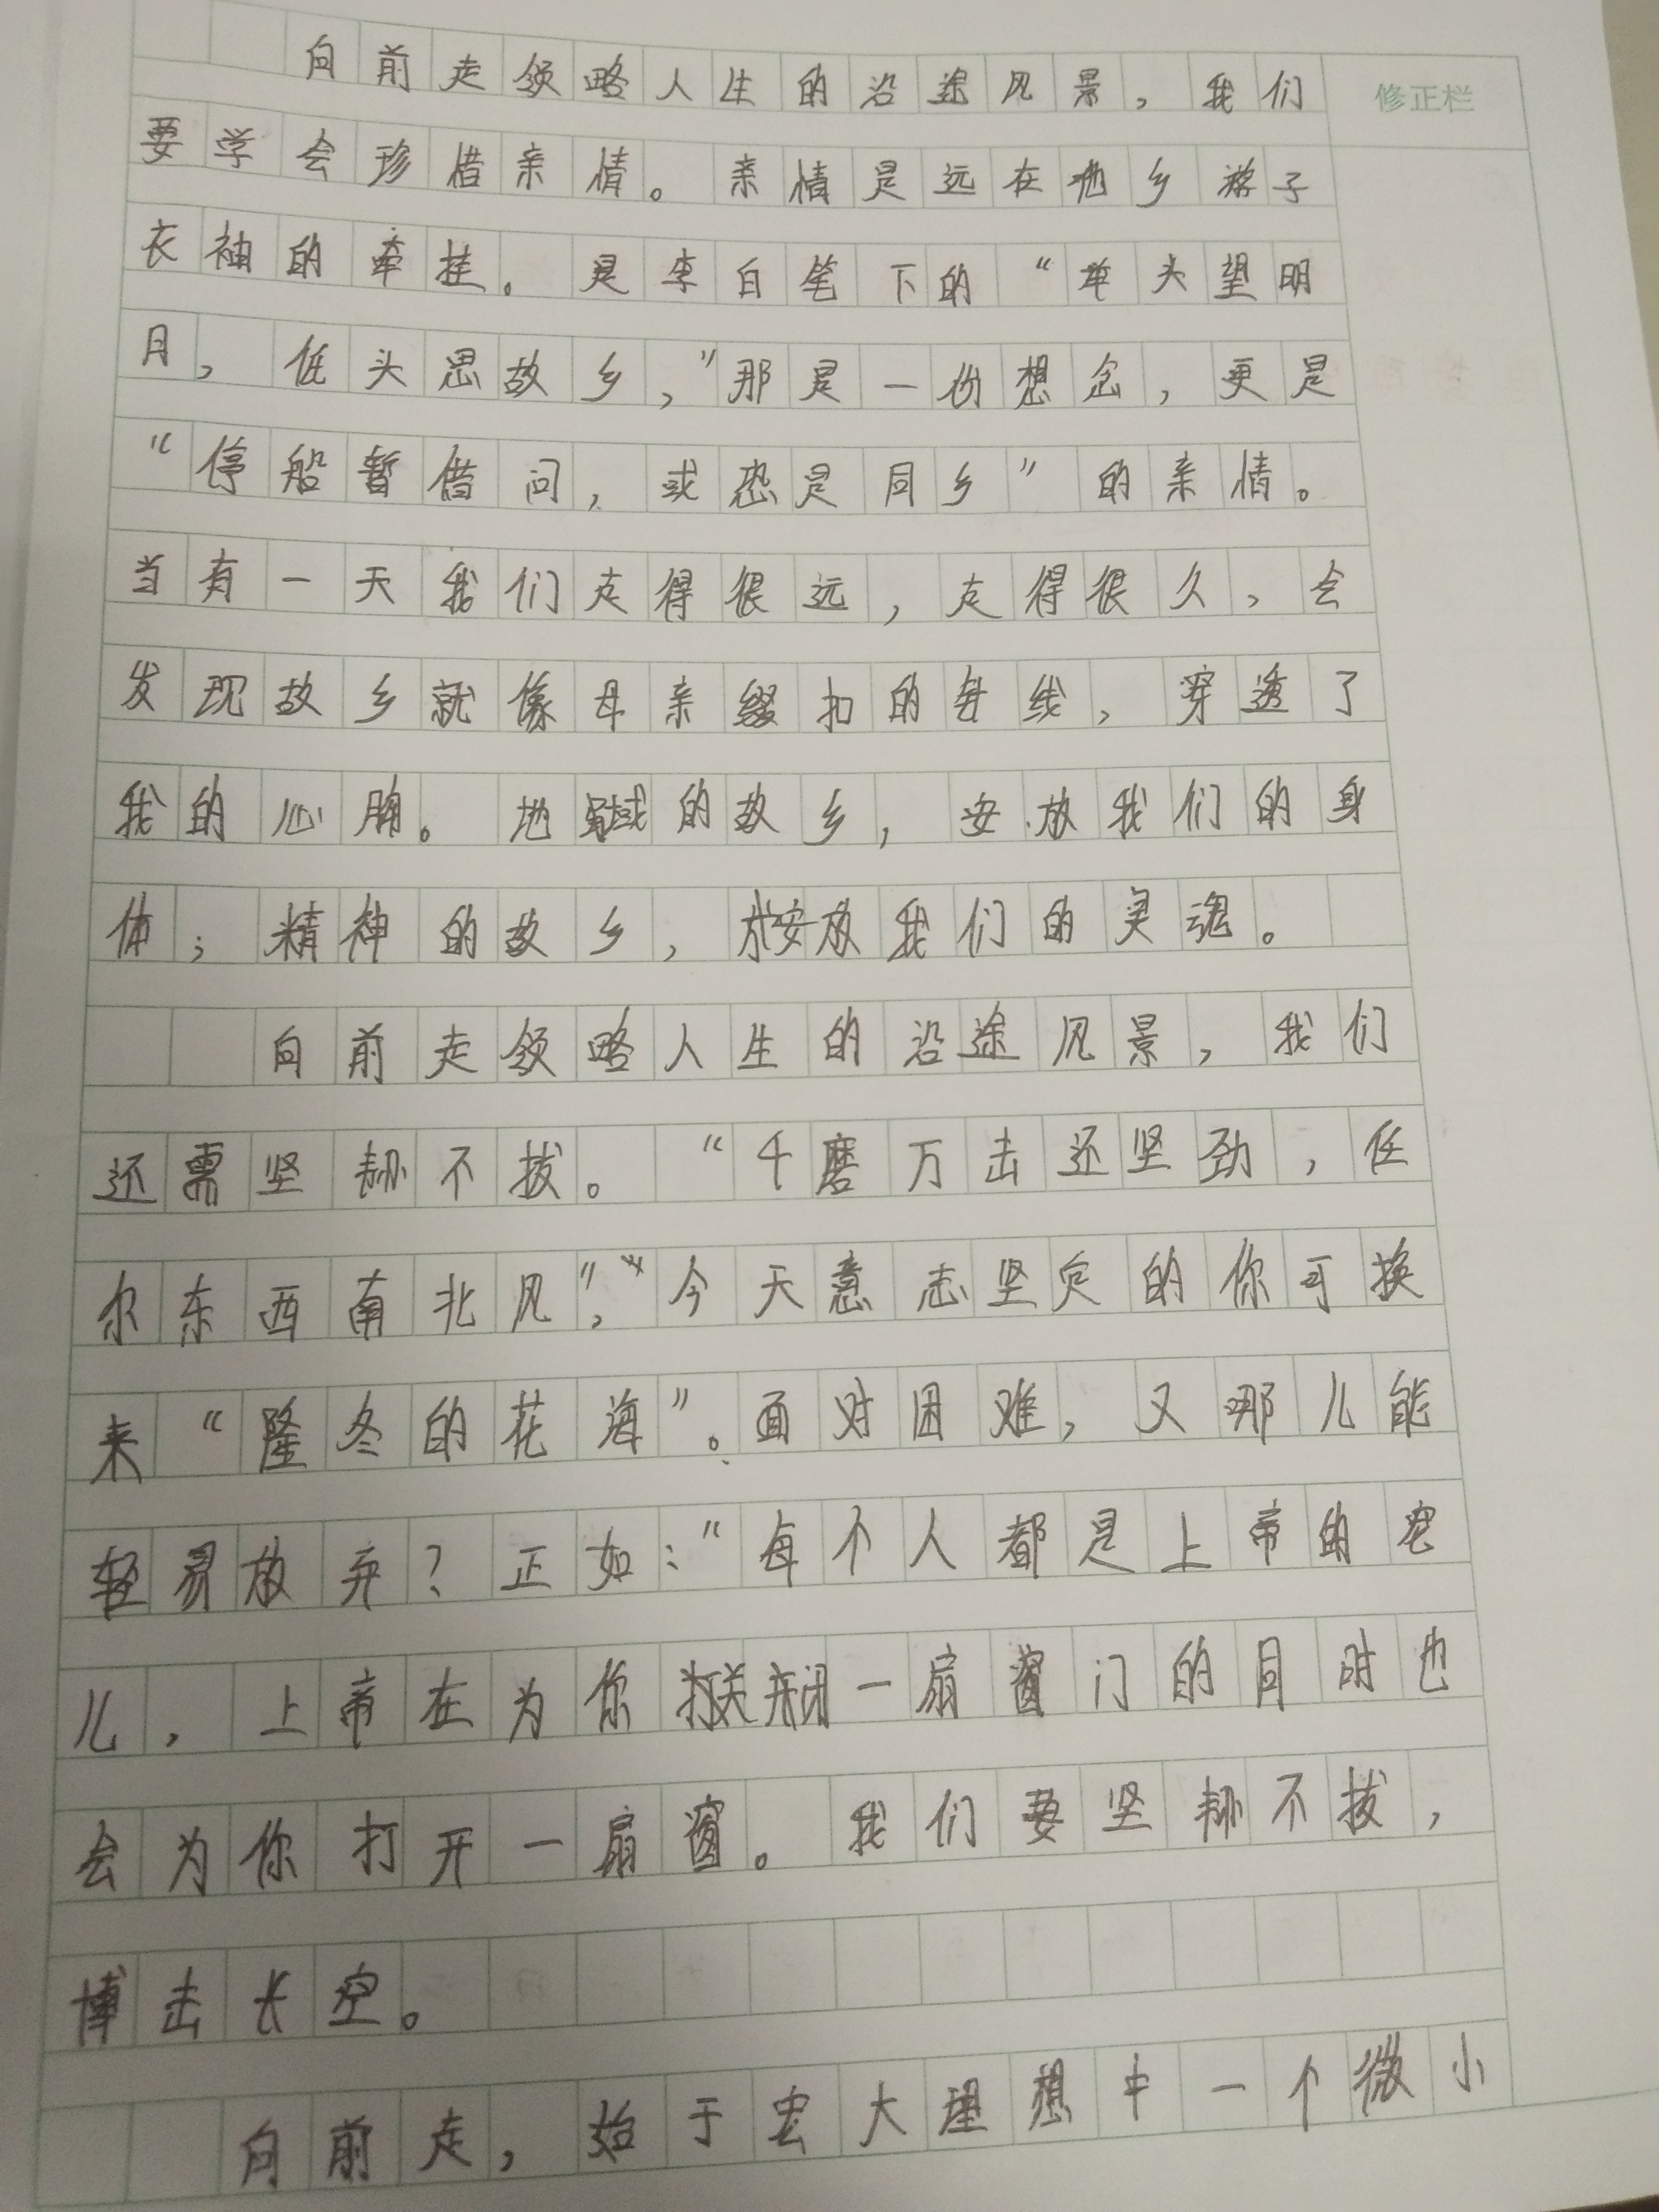 向前走领略人生的沿途风景，我们
修正栏
要学会珍惜亲情。亲情是远在他乡游子
衣袖的牵挂。是李白笔下的“举头望明
月，低头思故乡，”那是一份想念，更是
“停船暂借问，或恐是同乡”的亲情。
当有一天我们走得很远，走得很久，会
发现故乡就像母亲缀扣的针线，穿透了
我的心胸。地域的故乡，安放我们的身
体；精神的故乡，安放我们的灵魂。
向前走领略人生的沿途风景，我们
还需坚韧不拔。“千磨万击还坚劲，任
尔东西南北风”，今天意志坚定的你可换
来“隆冬的花海”。面对困难，又哪儿能
轻易放弃？正如：“每个人都是上帝的宠
儿，上帝在为你关闭一扇窗门的同时也
会为你打开一扇窗。我们要坚韧不拔，
博击长空。
向前走，始于宏大理想中一个微小